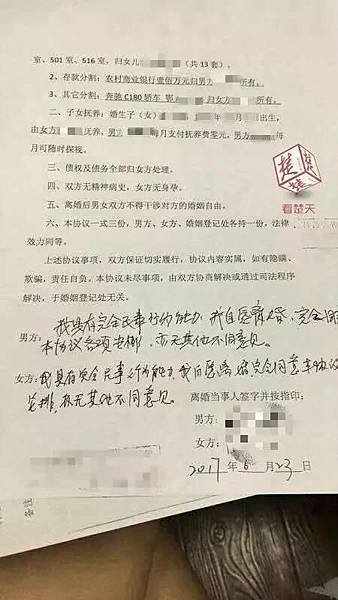 室、501 室、516 室,归女儿 (共 13 套)。
2、存款分割:农村商业银行壹佰万元归男方 所有。
3、其它分割:奔驰 C180 轿车 鄂 归女方 所有。
二、子女抚养:婚生子(女) 出生,
由女方 抚养,男方 每月支付抚养费零元,男方 每
月可随时探视。
三、债权及债务全部归女方处理。
四、双方无精神病史,女方无身孕。
五、离婚后男女双方不得干涉对方的婚姻自由。
六、本协议一式三份,男方、女方、婚姻登记处各持一份,法律
效力同等。
上述协议事项,双方保证切实履行,协议内容实属,如有隐瞒、
欺骗,责任自负。本协议未尽事项,由双方协商解决或通过司法程序
解决,于婚姻登记处无关。
看楚天
男方:我具有完全民事行为能力,我自愿离婚,完全同
本协议各项安排,亦无其他不同意见。
女方:我具有完全民事行为能力,我自愿离婚完全同意本协议
安排,亦无其他不同意见。
离婚当事人签字并按指印:
男方:
女方:
2017 年 6 月 23 日